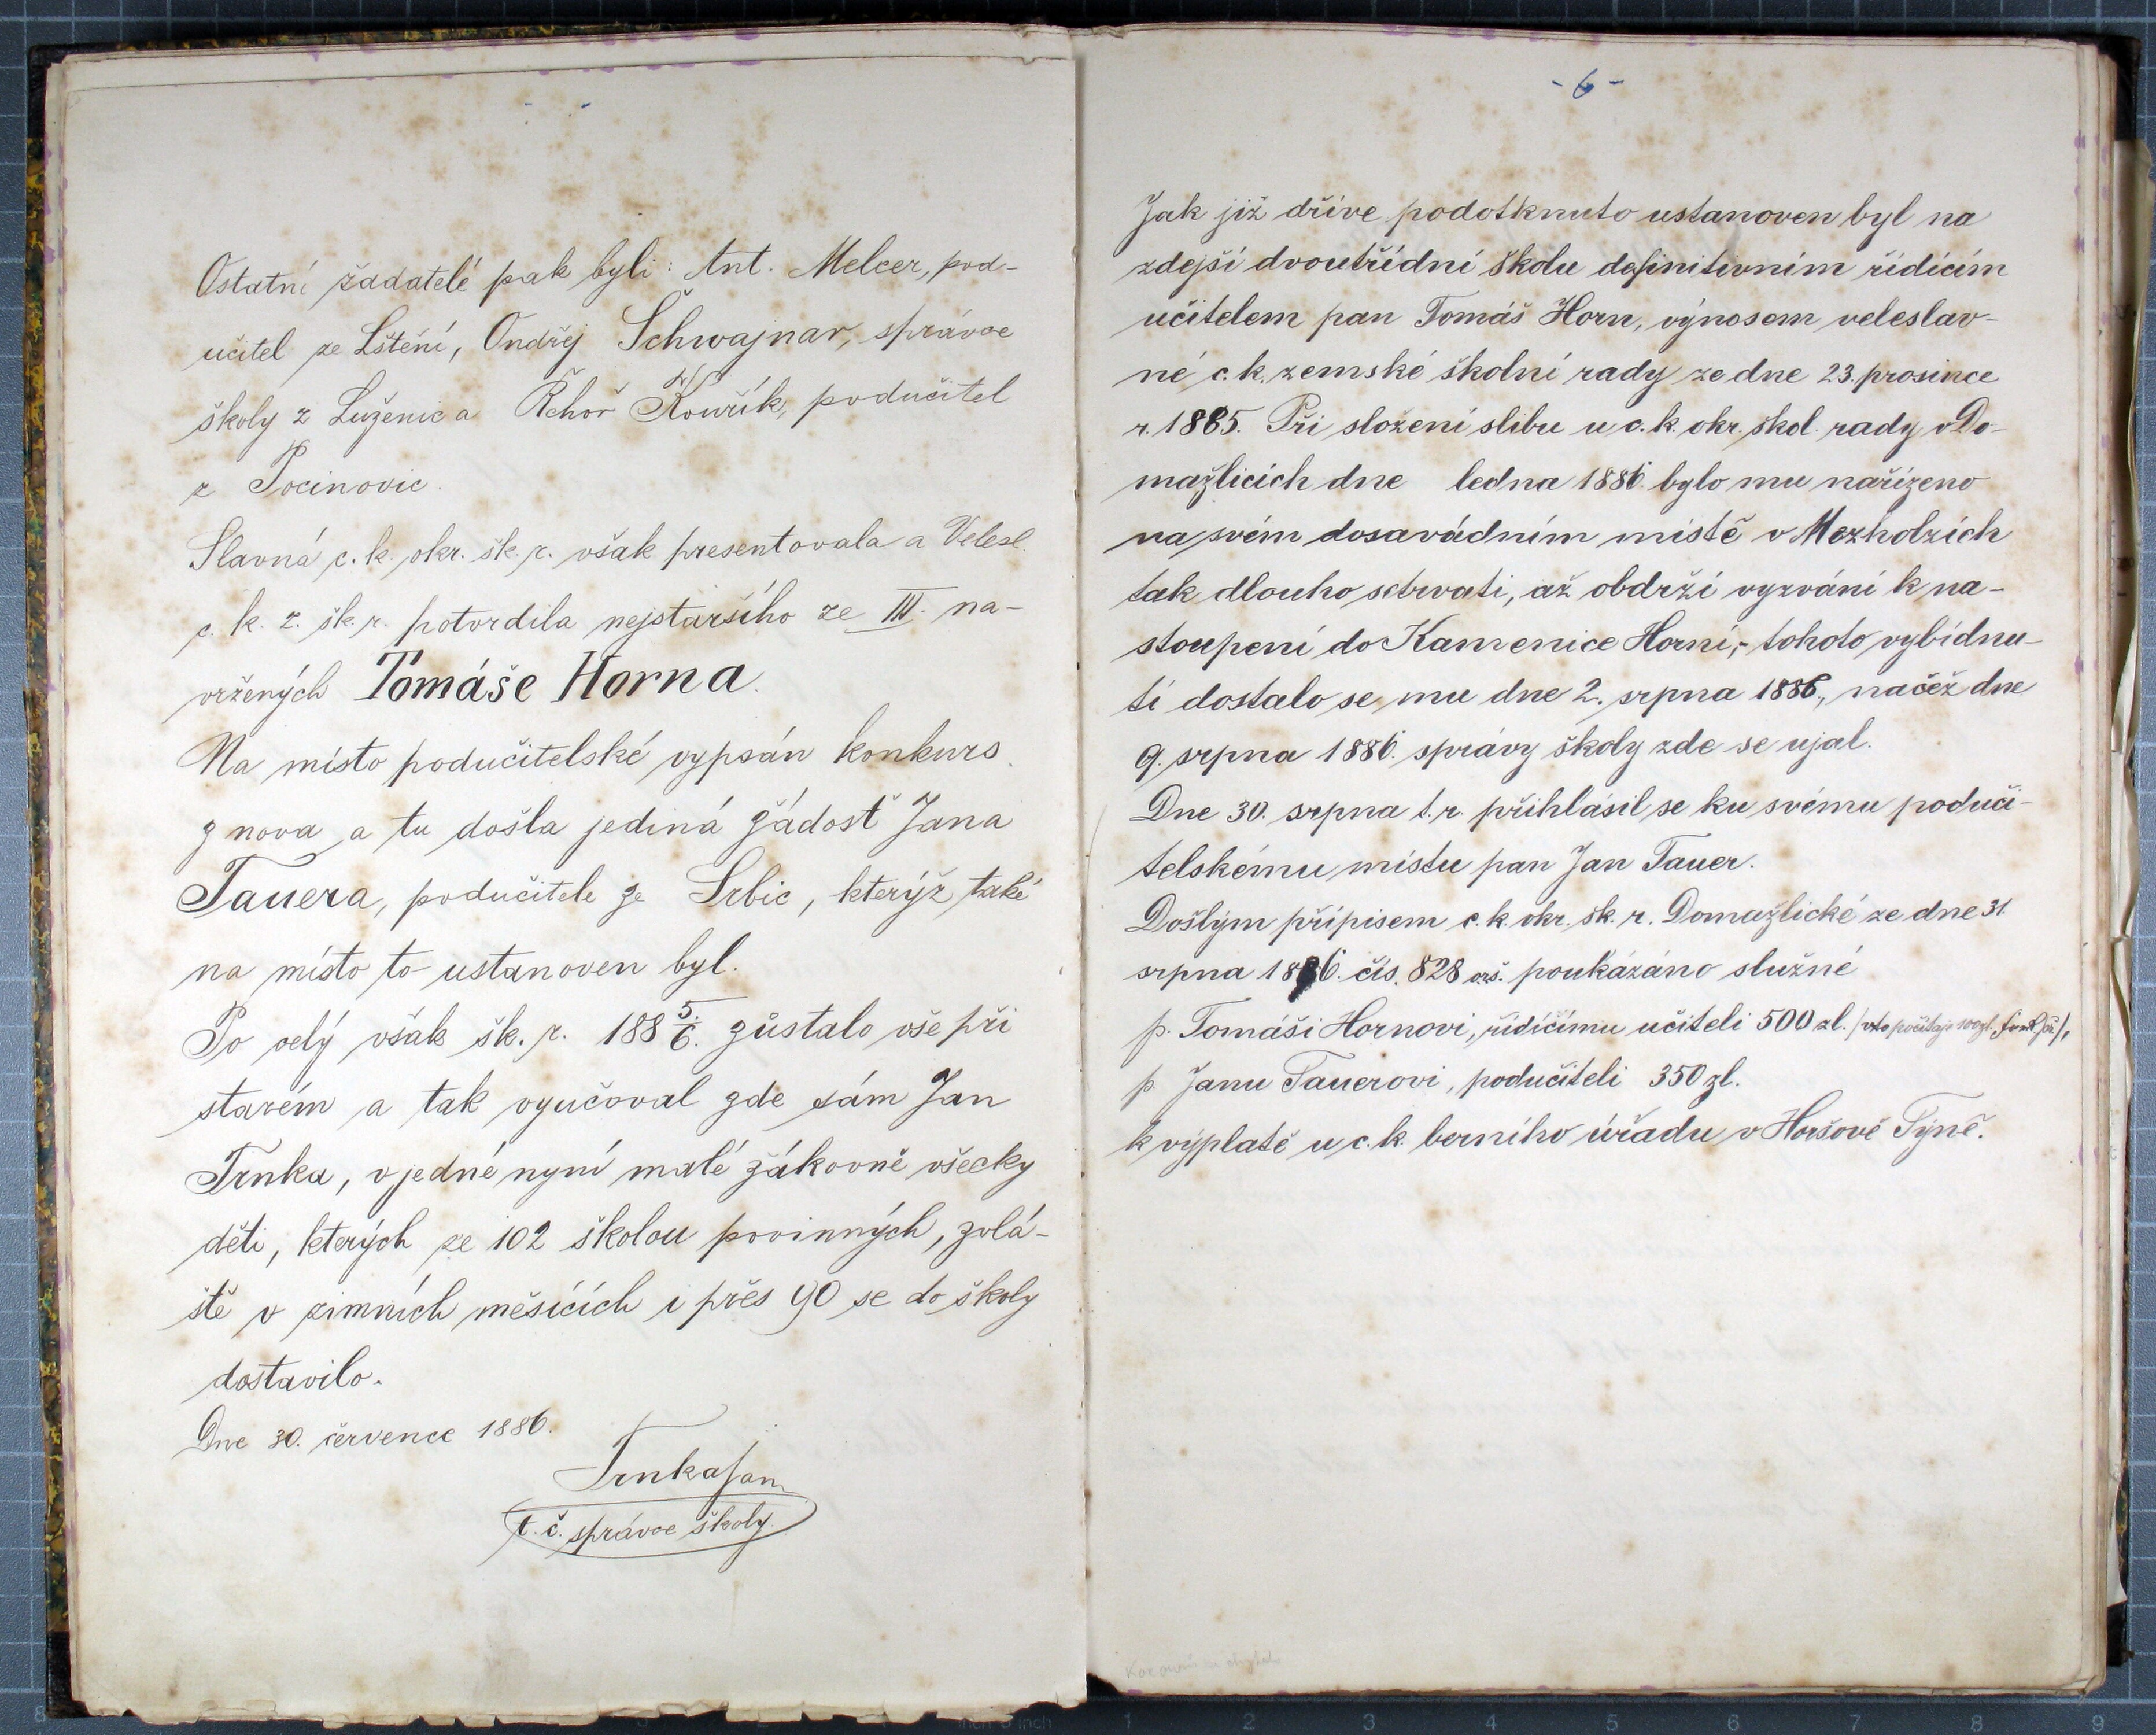 Ostatní žadatelé pak byli: Ant. Melcer, pod-
učitel ze Lštění, Ondřej Schwajnar, správce
školy z Luženic a Řehoř Kouřík, podučitel
z Pocinovic.
Slavná c. k. okr. šk. r. však presentovala a Velesl.
c. k. z. šk. r. potvrdila nejstaršího ze III. na-
vržených Tomáše Horna.
Na místo podučitelské vypsán konkurs
z nova a tu došla jediná žádosť Jana
Tauera, podučitele ze Srbic, kterýž také
na místo to ustanoven byl.
Po celý však šk. r. 1885/6. zůstalo vše při
starém a tak vyučoval zde sám Jan
Trnka, v jedné nyní malé žákovně všecky
děti, kterých ze 102 školou povinných, zvlá-
ště v zimních měsících i přes 90 se do školy
dostavilo.
Dne 30. července 1886.
Trnka Jan
t. č. správce školy.
- 6 -
Jak již dříve podotknuto ustanoven byl na
zdejší dvoutřídní školu definitivním řídícím
učitelem pan Tomáš Horn, výnosem veleslav-
né c. k. zemské školní rady ze dne 23. prosince
r. 1885. Při složení slibu u c. k. okr. škol. rady v Do-
mažlicích dne ledna 1886. bylo mu nařízeno
na svém dosavádním místě v Mezholzích
tak dlouho setrvati, až obdrží vyzvání k na-
stoupení do Kamenice Horní,- tohoto vybídnu-
tí dostalo se mu dne 2. srpna 1886., načež dne
9. srpna 1886. správy školy zde se ujal.
Dne 30. srpna t. r. přihlásil se ku svému poduči-
telskému místu pan Jan Tauer.
Došlým přípisem c. k. okr. šk. r. Domažlické ze dne 31.
srpna 1886. čís. 828 poukázáno služné
p. Tomáši Hornovi, řídícímu učiteli 500 zl. /v to počítaje 100 zl. /,
p. Janu Tauerovi, podučiteli 350 zl.
k výplatě u c. k. berního úřadu v Horšově Týně.